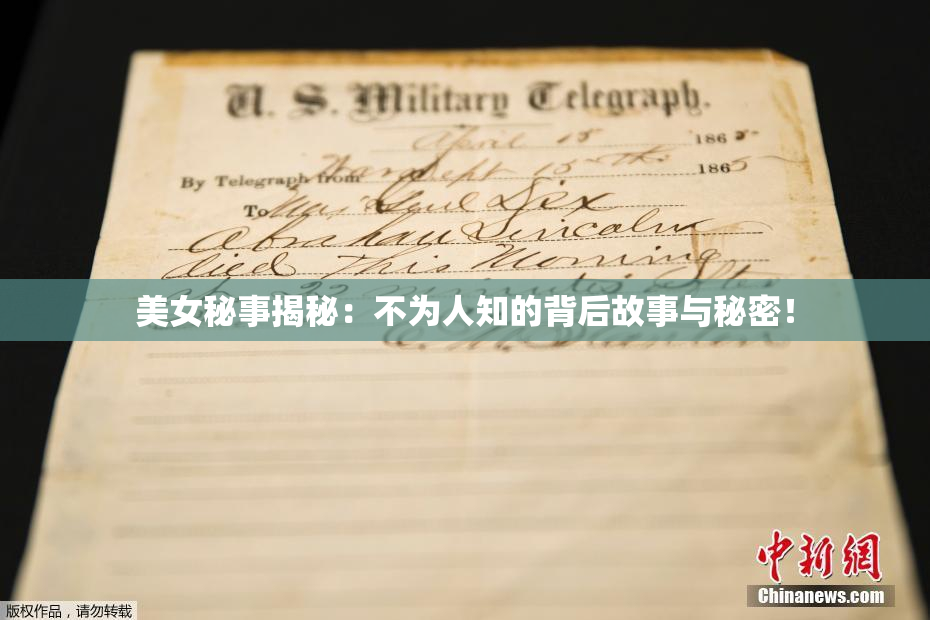 U. S. Military Telegraph.
April 15 1865
By Telegraph from War Dept 15th 1865
To Maj Genl Dix
Abraham Lincoln
died This Morning
22 minutes after
美女秘事揭秘：不为人知的背后故事与秘密！
E. M. Stanton
中新网
Chinanews.com
版权作品，请勿转载